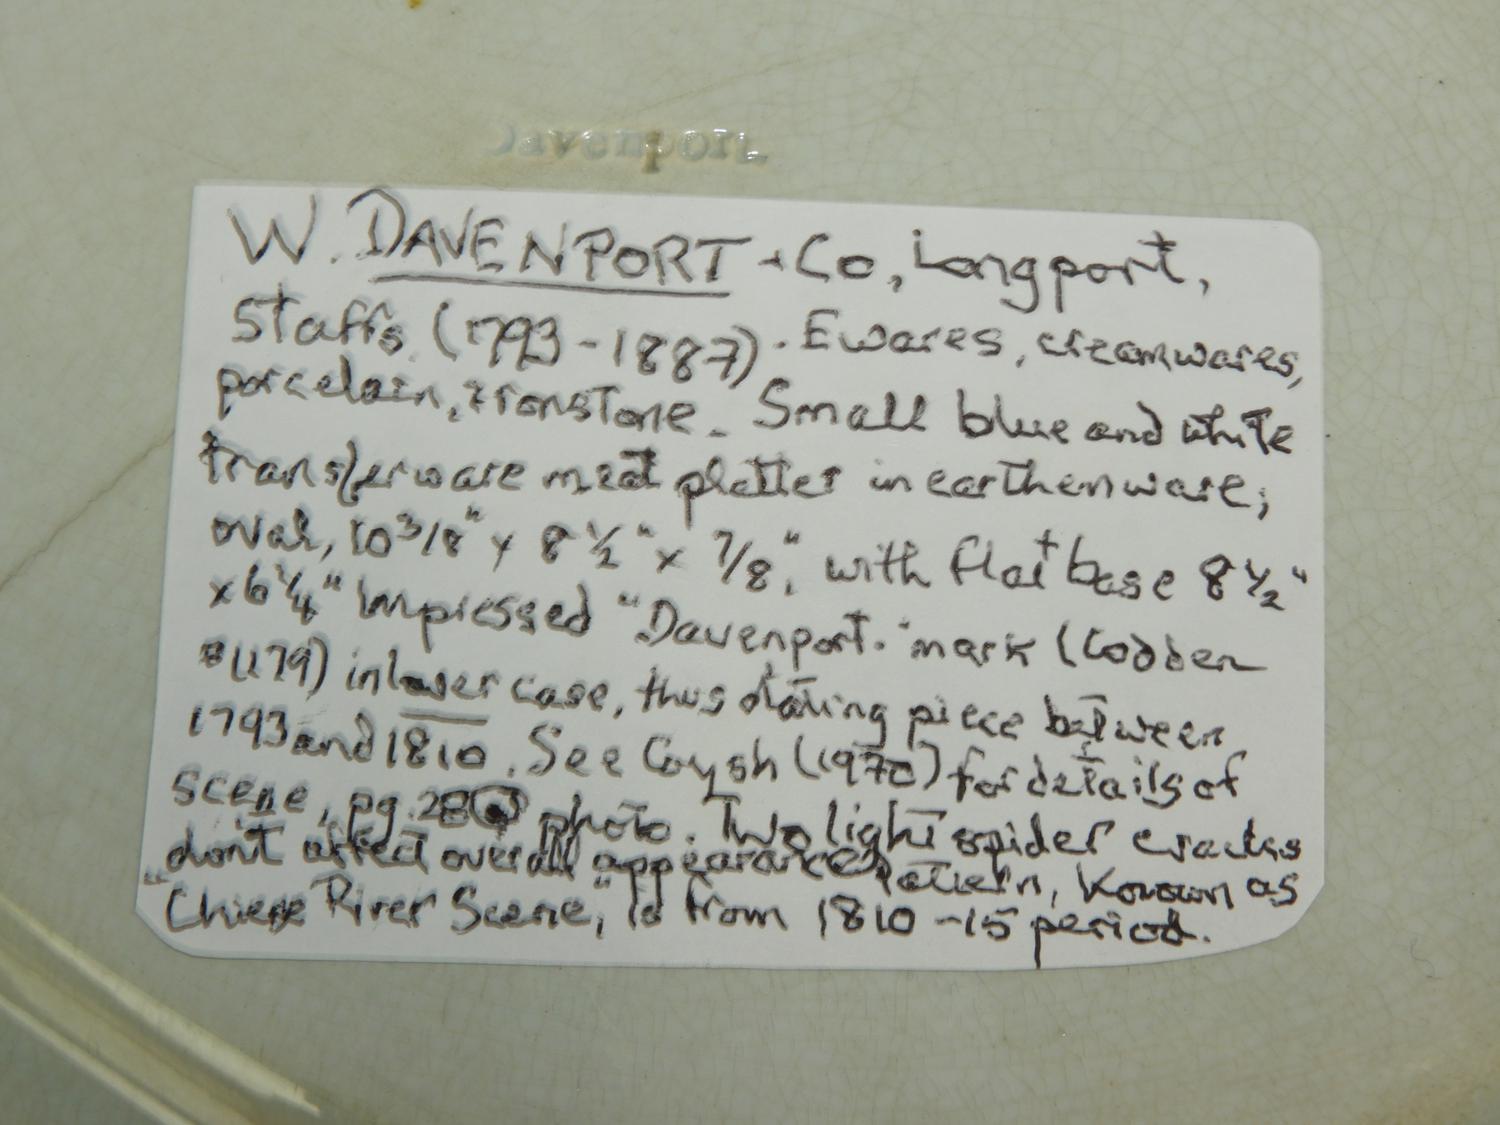 Davenport.
W. DAVENPORT + Co, Longport,
Staffs. (1793-1887). Ewares, creamwares,
porcelain, ironstone. Small blue and white
transferware meat platter in earthenware;
oval, 10 3/8" x 8 1/2" x 7/8", with flat base 8 1/2"
x 6 1/4" Impressed "Davenport." mark (Godden
#1179) in lower case, thus dating piece between
1793 and 1810. See Coysh (1970) for details of
scene, pg. 28 photo. Two light spider cracks
don't affect overall appearance. Pattern, known as
"Chiese River Scene," is from 1810-15 period.